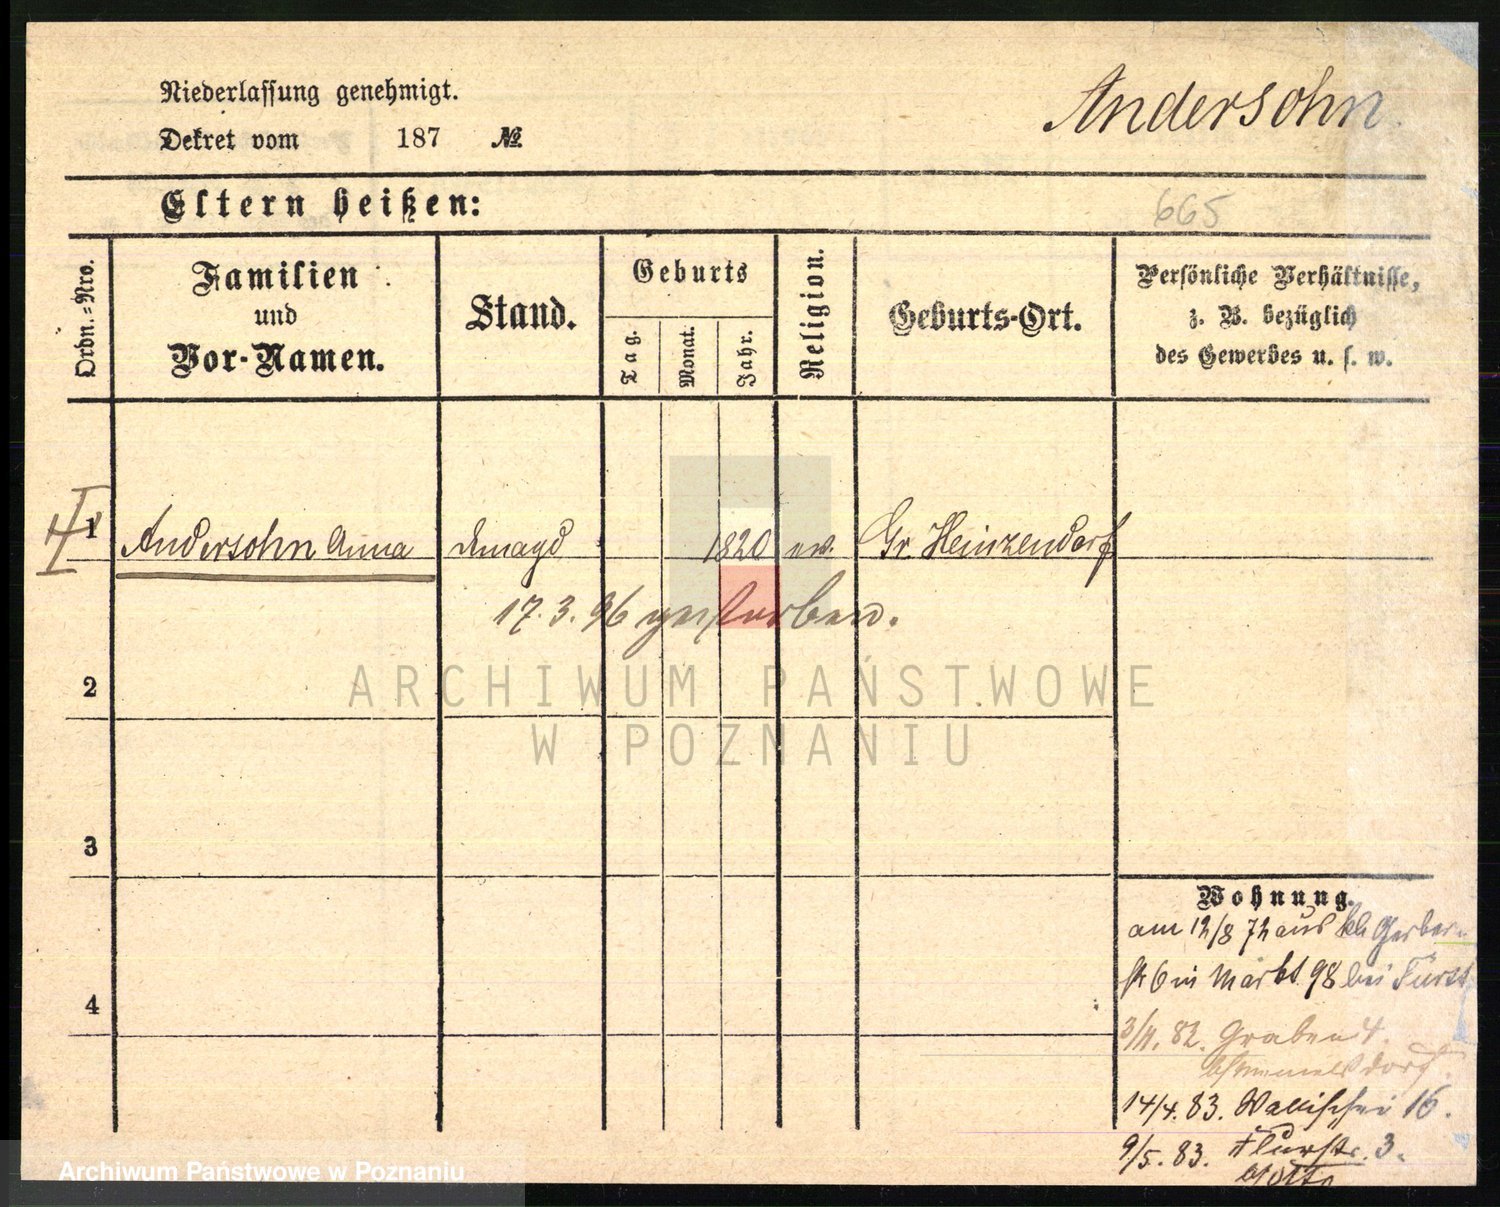 Niederlassung genehmigt.
Andersohn.
Dekret vom 187 №
Eltern heißen:
665
Ordn.-Nro.
Familien und Vor-Namen.
Stand.
Geburts
Tag.
Monat.
Jahr.
Religion.
Geburts-Ort.
Persönliche Verhältnisse,
z. B. bezüglich
des Gewerbes u. s. w.
1 Andersohn Anna 1820 ev. Gr. Heinzendorf
17. 3. 96 gestorben.
2
ARCHIWUM PAŃSTWOWE
W POZNANIU
3
Wohnung.
am 12/8 72 aus kl Gerber-
4
str 6 in Markt 98 bei Fürst
3/11. 82. Graben 4.
14/4. 83. Wallischei 16.
9/5. 83. Flurstr. 3.
Archiwum Państwowe w Poznaniu